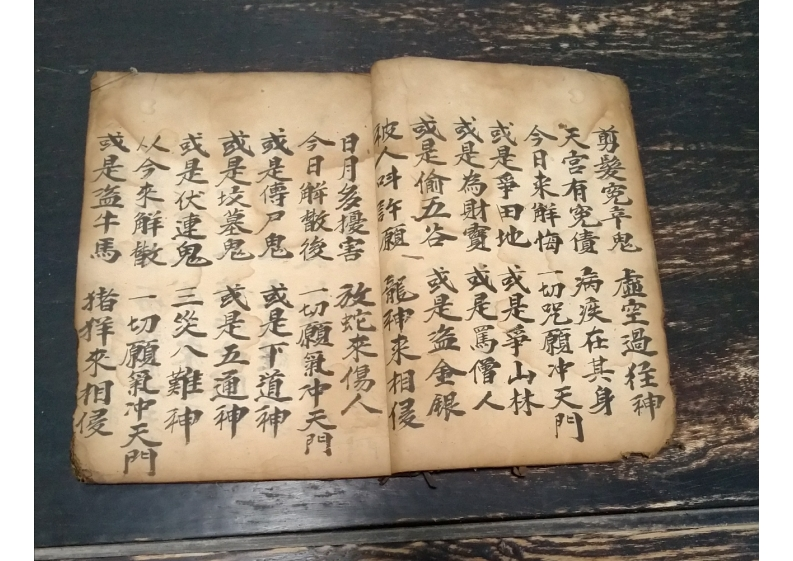 剪髮冤辛鬼 虛空過往神
天宮有冤債 病疾在其身
今日来解悔 一切咒願冲天門
或是爭田地 或是爭山林
或是為財寶 或是罵僧人
或是偷五谷 或是盗金銀
被人呌許願 龍神来相侵
日月多擾害 放蛇来傷人
今日解散後 一切願氣冲天門
或是傳尸鬼 或是下道神
或是坟墓鬼 或是五通神
或是伏連鬼 三災八難神
从今来解散 一切願氣冲天門
或是盗牛馬 猪羊来相侵